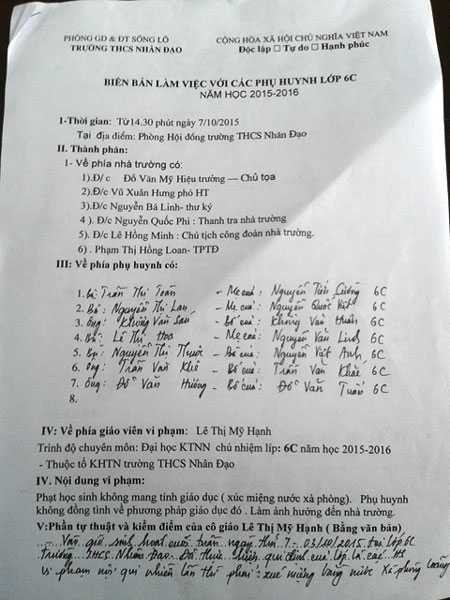 PHÒNG GD & ĐT SÔNG LÔ
CỘNG HÒA XÃ HỘI CHỦ NGHĨA VIỆT NAM
TRƯỜNG THCS NHÂN ĐẠO
Độc lập Tự do Hạnh phúc
BIÊN BẢN LÀM VIỆC VỚI CÁC PHỤ HUYNH LỚP 6C
NĂM HỌC 2015-2016
I-Thời gian: Từ 14.30 phút ngày 7/10/2015
Tại địa điểm: Phòng Hội đồng trường THCS Nhân Đạo
II. Thành phần:
1- Về phía nhà trường có:
1).Đ/c Đỗ Văn Mỹ Hiệu trưởng — Chủ tọa
2).Đ/c Vũ Xuân Hưng phó HT
3).Đ/c Nguyễn Bá Linh- thư ký
4 ). Đ/c Nguyễn Quốc Phi : Thanh tra nhà trường
5). Đ/c Lê Hồng Minh : Chủ tịch công đoàn nhà trường.
6) . Phạm Thị Hồng Loan- TPTĐ
III: Về phía phụ huynh có:
1. Trần Thị Toàn - Mẹ của: Nguyễn Tiến Cường 6C
2. Bà: Nguyễn Thị Lan - Mẹ của: Nguyễn Quốc Việt 6C
3. Ông: Khổng Văn - Bố của: Khổng Văn Huấn 6C
4. Bà: Lê Thị Hoa - Mẹ của: Nguyễn Văn Linh 6C
5. Nguyễn Thị - Nguyễn Việt Anh 6C
6. Ông: Trần Văn Khê - Bố của: Trần Văn 6C
7. Ông: Đỗ Văn Hướng - Bố của: Đỗ Văn Tuấn 6C
8.
IV: Về phía giáo viên vi phạm: Lê Thị Mỹ Hạnh
Trình độ chuyên môn: Đại học KTNN chủ nhiệm líp: 6C năm học 2015-2016
- Thuộc tổ KHTN trường THCS Nhân Đạo
IV. Nội dung vi phạm:
Phạt học sinh không mang tính giáo dục ( xúc miệng nước xà phòng). Phụ huynh
không đồng tình về phương pháp giáo dục đó . Làm ảnh hưởng đến nhà trường.
V:Phần tự thuật và kiểm điểm của cô giáo Lê Thị Mỹ Hạnh ( Bằng văn bản)
Vào giờ sinh hoạt cuối tuần ngày thứ 7 - 03/10/2015 tại lớp 6C
trường THCS Nhân Đạo. Để thực hiện qui định của lớp là các HS
vi phạm nội qui nhiều lần thì phải xúc miệng bằng nước xà phòng